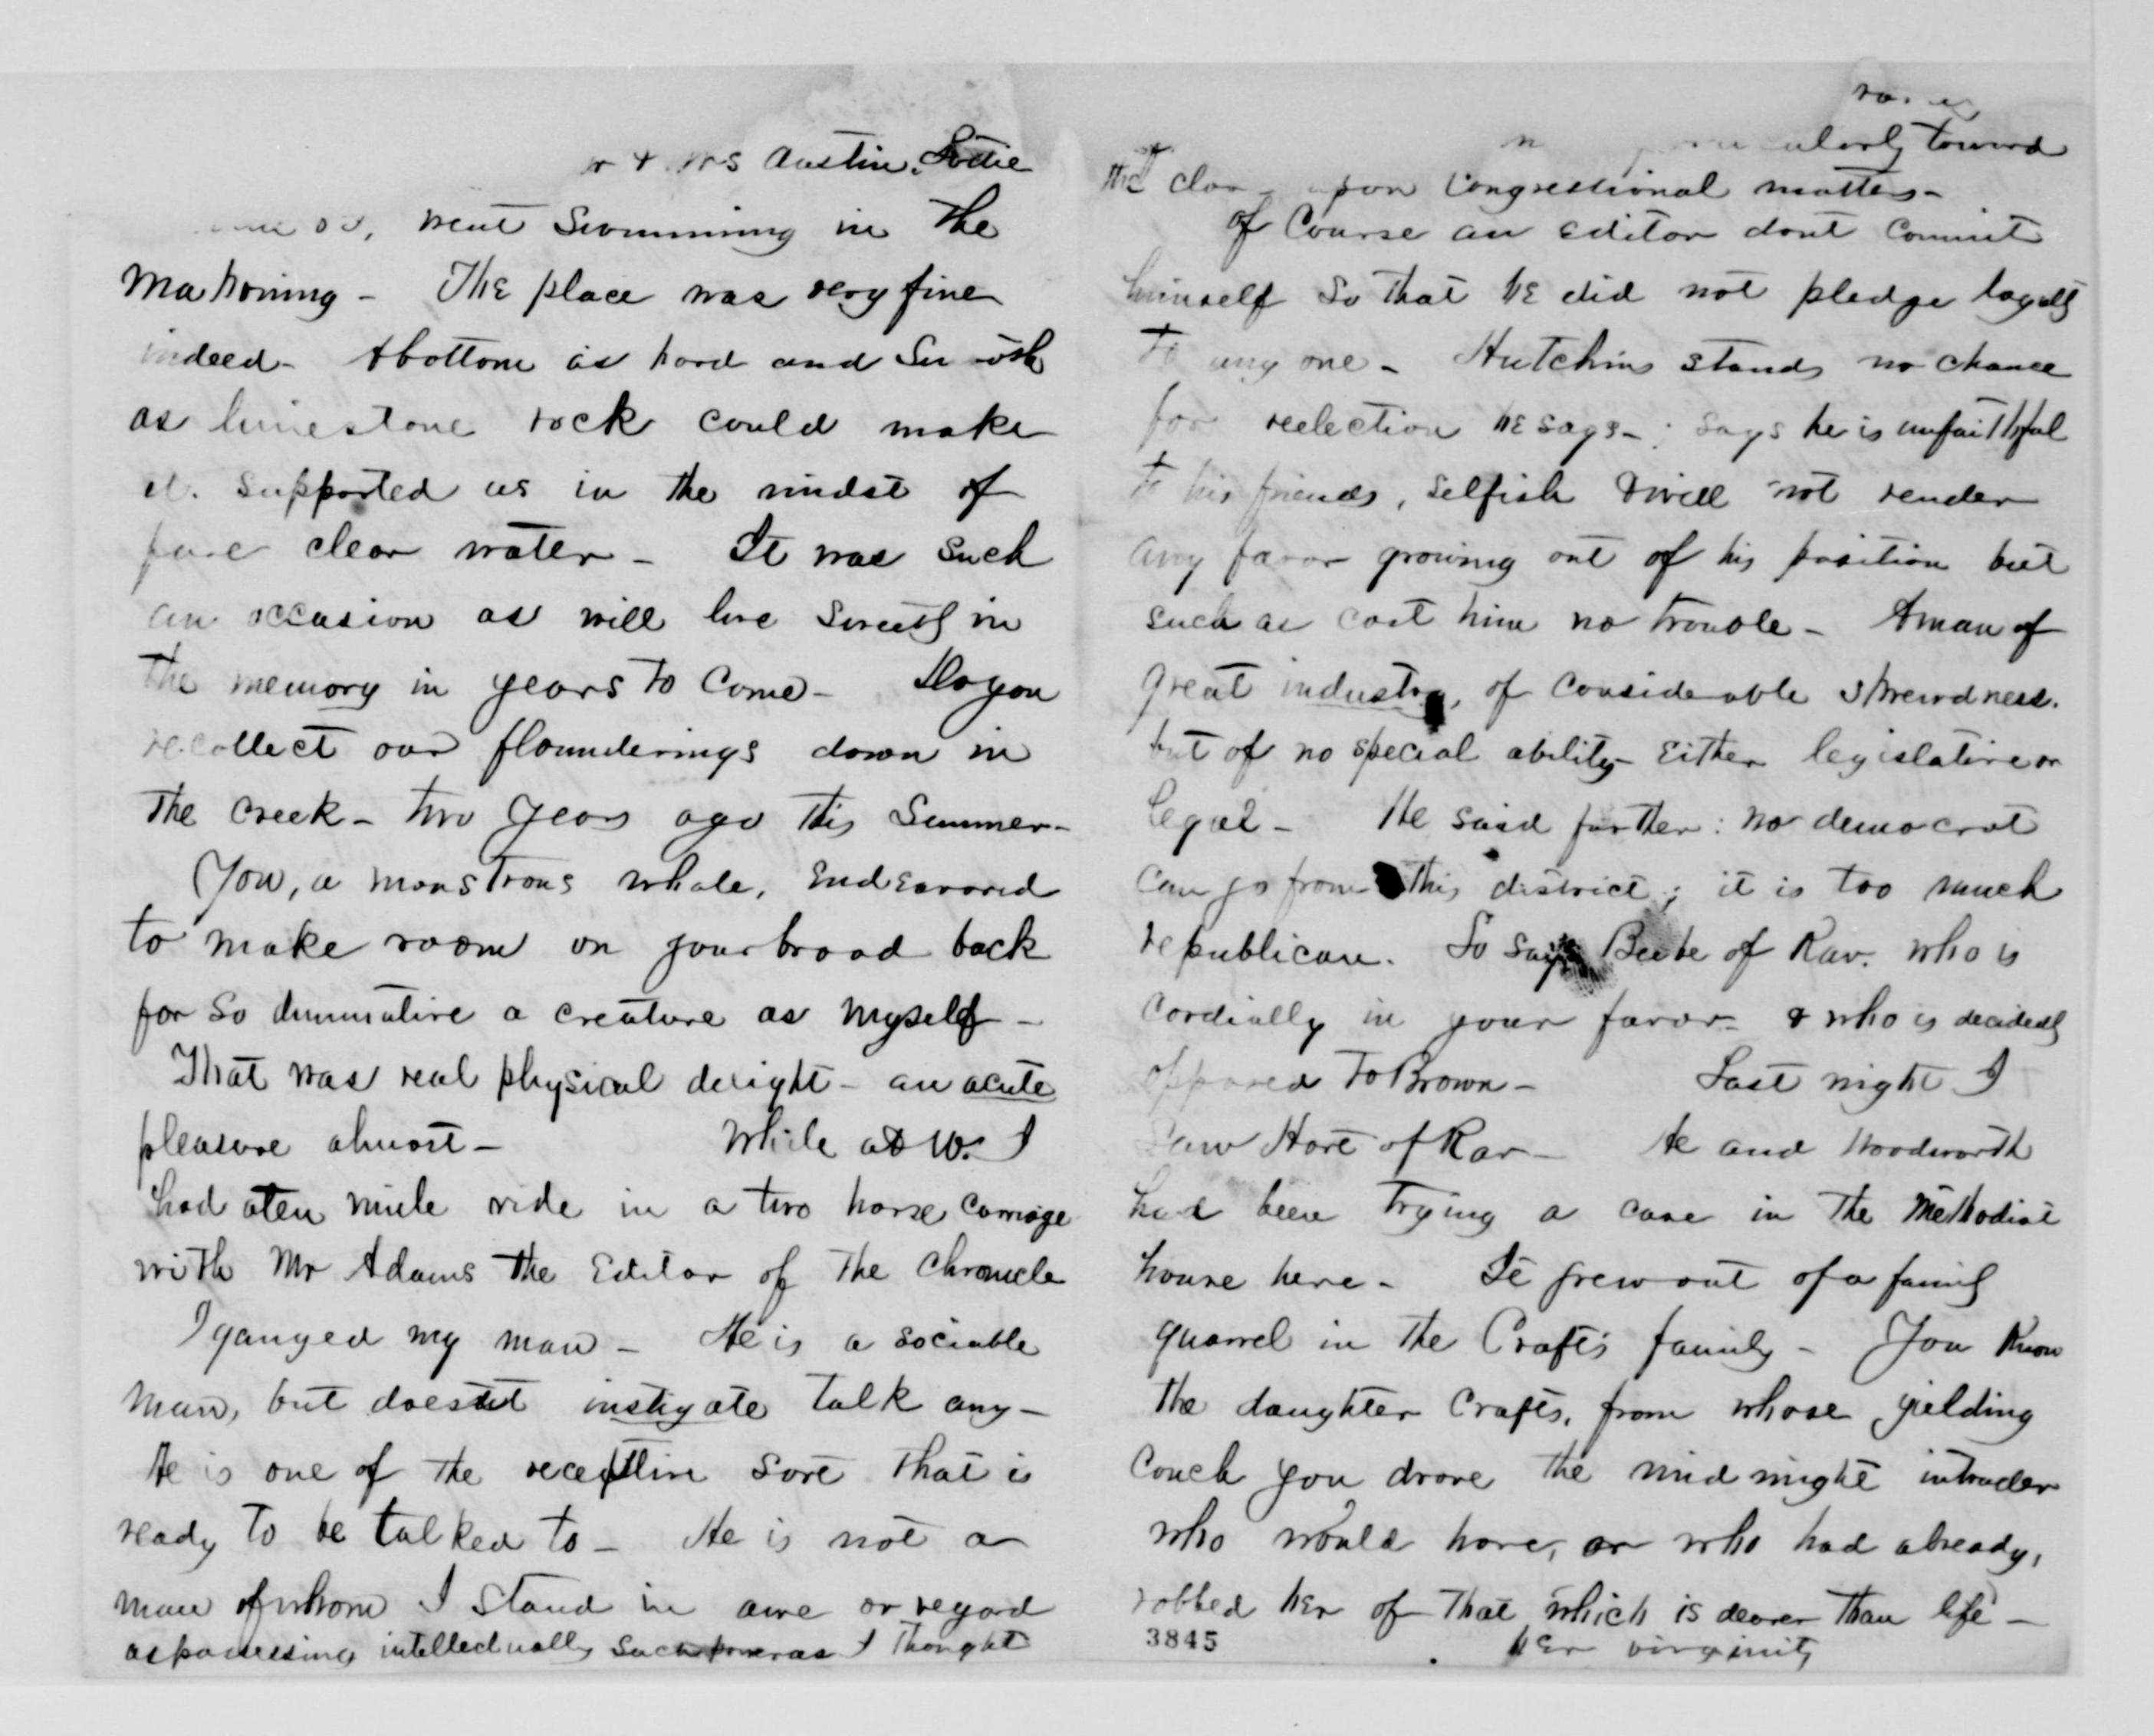 & Mrs Austin, Sodie
went swimming in the
Mahoning - The place was very fine
indeed - A bottom as hard and smooth
as limestone rock could make
it. supported us in the midst of
pure clear water - It was such
an occasion as will live sweetly in
the memory in years to come - Do you
recollect our flounderings down in
the creek - two years ago this Summer -
You, a monstrous whale, endeavored
to make room on your broad back
for so dimmutive a creature as myself -
That was real physical delight - an acute
pleasure almost - While at W. I
had a ten mile ride in a two horse carriage
with Mr Adams the Editor of the Chronicle
I gauged my man - He is a sociable
man, but doesnt instigate talk any -
He is one of the receptive sort that is
ready to be talked to - He is not a
man of whom I stand in awe or regard
as possessing intellectually such power as I thought
toward
the upon Congressional matters -
of Course an editor dont commit
himself so that he did not pledge loyalty
to any one - Hutchins stands no chance
for reelection he says - ; says he is unfaithful
to his friends, selfish & will not render
any favor growing out of his position but
such as cost him no trouble - A man of
great industry, of considerable shrewdness.
but of no special ability - either legislative or
legal - He said further : no democrat
can go from this district ; it is too much
republican. So says Beebe of Rav. who is
cordially in your favor - & who is decidedly
opposed to Brown - Last night I
saw Hart of Rav - He and Woodworth
had been trying a case in the Methodist
house here - It grew out of a family
quarrel in the Crafts family - You know
the daughter Crafts, from whose yielding
couch you drove the mid night intruder
who would have, or who had already,
robbed her of that which is dearer than life -
3845 her virginity